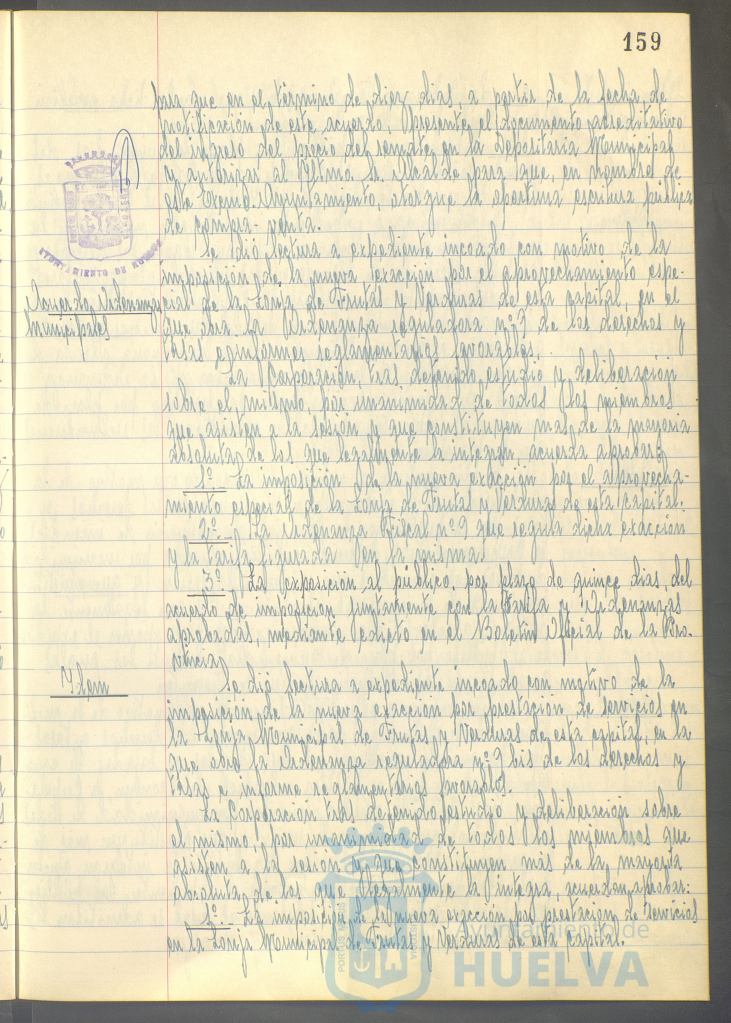 159
para que en el término de diez dias, a partir de la fecha de
notificación de este acuerdo, presente el documento acreditativo
del ingreso del precio del remate en la Depositaria Municipal
y autorizar al Iltmo. Sr. Alcalde para que, en nombre de
este Excmo. Ayuntamiento, otorgue la oportuna escritura pública
de compra-venta.
AYUNTAMIENTO DE HUELVA
Acuerdo Ordenanzas
Municipales
Se dió lectura a expediente incoado con motivo de la
imposición de la nueva exacción por el aprovechamiento espe-
cial de la Lonja de Frutas y Verduras de esta capital, en el
que obra la Ordenanza reguladora nº 9 de los derechos y
tasas e informes reglamentarios favorables.
La Corporación, tras detenido estudio y deliberación
sobre el mismo, por unanimidad de todos los miembros
que asisten a la sesión y que constituyen mas de la mayoria
absoluta de los que legalmente la integran, acuerda aprobar:
1º. La imposición de la nueva exacción por el aprovecha-
miento especial de la Lonja de Frutas y Verduras de esta capital.
2º. La Ordenanza Fiscal nº 9 que regula dicha exacción
y la tarifa figurada en la misma.
3º. La exposición al público, por plazo de quince dias, del
acuerdo de imposición juntamente con la Tarifa y Ordenanzas
aprobadas, mediante edicto en el Boletin Oficial de la Pro-
vincia.
Idem
Se dió lectura a expediente incoado con motivo de la
imposición de la nueva exacción por prestación de servicios en
la Lonja Municipal de Frutas y Verduras de esta capital, en la
que obra la Ordenanza reguladora nº 9 bis de los derechos y
tasas e informe reglamentarios favorables.
La Corporación tras detenido estudio y deliberación sobre
el mismo, por unanimidad de todos los miembros que
asisten a la sesión y que constituyen más de la mayoria
absoluta de los que legalmente la integra, acuerdan aprobar:
1º. La imposición de la nueva exacción por prestación de servicios
en la Lonja Municipal de Frutas y Verduras de esta capital.
Ayuntamiento de
HUELVA